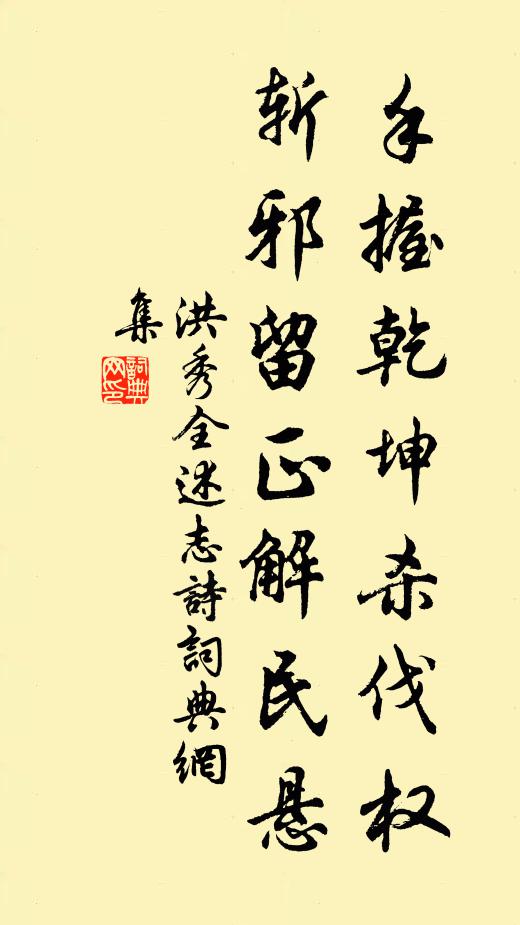 手握乾坤杀伐权
斩邪留正解民悬
洪秀全述志詩詞典網
集
詞典網印